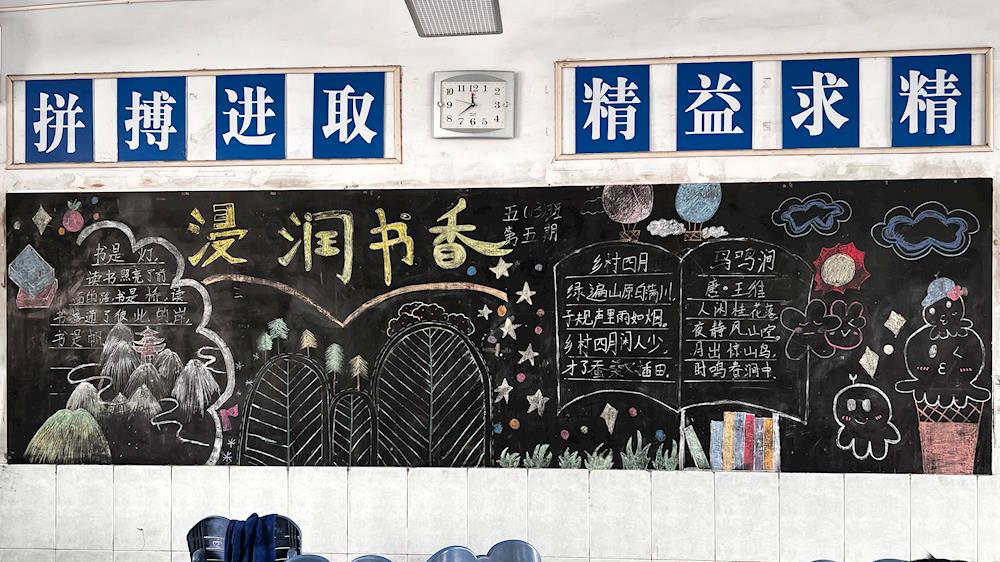 拼搏进取
精益求精
浸润书香
五(3)班
第五期
书是灯,
读书照亮了前
面的路书是桥,读
书接通了彼此的岸,
书是帆
乡村四月
绿遍山原白满川,
子规声里雨如烟。
乡村四月闲人少,
才了蚕桑又插田。
鸟鸣涧
唐·王维
人闲桂花落
夜静风山空
月出惊山鸟
时鸣春涧中